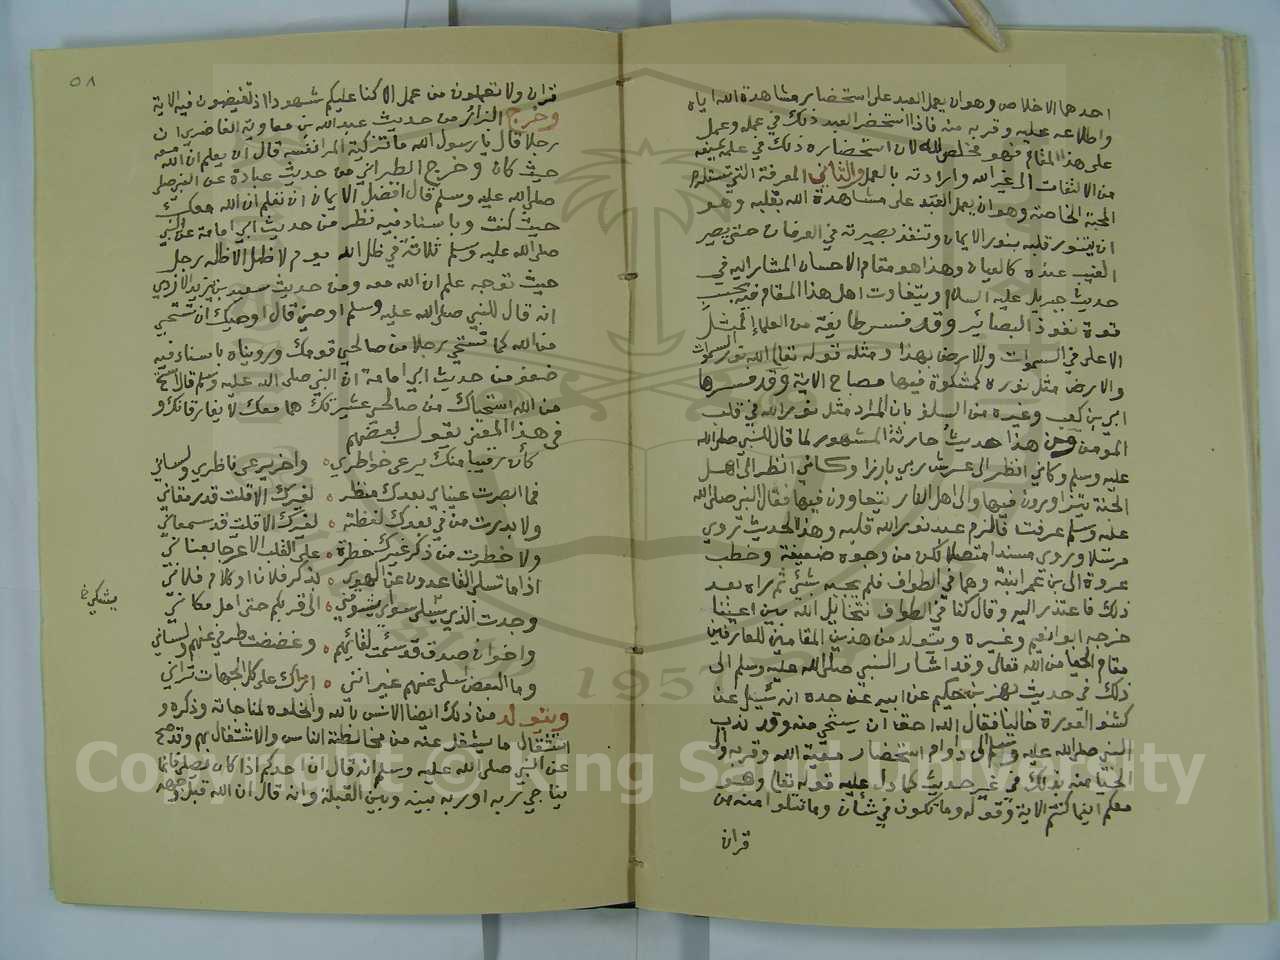 احدهما الاخلاص وهو ان يعمل العبد على استحضار مشاهدة الله اياه
واطلاعه عليه وقربه منه فاذا استحضر العبد ذلك في عمله وعمل
على هذا المقام فهو مخلص لله لان استحضاره ذلك في عمله يمنعه
من الالتفات الى غير الله وارادته بالعمل والثاني المعرفة التي تستلزم
المحبة الخاصة وهو ان يعمل العبد على مشاهدة الله بقلبه وهو
ان يتنور قلبه بنور الايمان وتنفذ بصيرته في العرفان حتى يصير
الغيب عنده كالعيان وهذا هو مقام الاحسان المشار اليه في
حديث جبريل عليه السلام ويتفاوت اهل هذا المقام فيه بحسب
قوة نفوذ البصائر وقد فسر طايفة من العلما المثل
الاعلى في السموات والارض بهذا ومثله قوله تعالى الله نور السموات
والارض مثل نوره كمشكوة فيها مصباح الاية وقد فسرها
ابي بن كعب وغيره من السلف بان المراد مثل نور الله في قلب
المؤمن ومن هذا حديث حارثة المشهور لما قال للنبي صلى الله
عليه وسلم وكاني انظر الى عرش ربي بارزا وكاني انظر الى اهل
الجنة يتزاورون فيها والى اهل النار يتعاوون فيها فقال النبي صلى الله
عليه وسلم عرفت فالزم عبد نور الله قلبه وهذا الحديث تروي
مرسلا وروي مسندا متصلا لكن من وجوه ضعيفة وخطب
عروة الى بن عمر ابنته وهما في الطواف فلم يجبه بشئ ثم راه بعد
ذلك فاعتذر اليه وقال كنا في الطوف نتخايل الله بين اعيننا
خرجه ابو نعيم وغيره ويتولد من هذين المقامين للعارفين
مقام الحيا من الله تعالى وقد اشار النبي صلى الله عليه وسلم الى
ذلك في حديث بهز بن حكيم عن ابيه عن جده انه سئل عن
كشف العورة خاليا فقال الله احق ان يستحى منه وقد ندب
النبي صلى الله عليه وسلم الى دوام استحضار معية الله وقربه والى
الحيا منه بذلك في غير حديث كما دل عليه قوله تعالى وهو
معكم اينما كنتم الاية وقوله وما تكون في شأن وما تتلوا منه من
قران
٥٨
قران ولا تعملون من عمل الا كنا عليكم شهودا اذ تفيضون فيه الاية
وخرج البزار من حديث عبد الله بن معاوية الغاضري ان
رجلا قال يا رسول الله ما تزكية المرا نفسه قال ان يعلم ان الله معه
حيث كان وخرج الطبراني من حديث عبادة عن النبي صلى
صلى الله عليه وسلم قال افضل الايمان ان تعلم ان الله معك
حيث كنت وباسناد فيه نظر من حديث ابي امامة عن النبي
صلى الله عليه وسلم ثلاثة في ظل الله يوم لا ظل الا ظله رجل
حيث توجه علم ان الله معه ومن حديث سعيد بن يزيد الازدي
انه قال للنبي صلى الله عليه وسلم اوصني قال اوصيك ان تستحي
من الله كما تستحي رجلا من صالحي قومك ورويناه باسناد فيه
ضعف من حديث ابي امامة ان النبي صلى الله عليه وسلم قال استح
من الله استحياك من صالحي عشيرتك هما معك لا يفارقانك و
في هذا المعنى يقول بعضهم
كأن رقيبا منك يرعى خواطري ٥ واخر يرعى ناظري ولساني
فما ابصرت عيناي بعدك منظر ٥ لغيرك الا قلت قد رمقاني
ولا بدرت من في بعدك لفظة ٥ لغيرك الا قلت قد سمعاني
ولا خطرت من ذكر غيرك خطرة ٥ على القلب الا عرجا بعناني
اذا ما تسلى القاعدون عن الهوى ٥ بذكر فلان او كلام فلاني
وجدت الذي يسلي سواي يشوقني ٥ الى قربكم حتى امل مكاني
واخوان صدق قد سئمت لقائهم ٥ وغضضت طرفي عنهم ولساني
وما البغض اسلى عنهم غير انني ٥ اراك على كل الجهات تراني
ويتولد من ذلك ايضا الانس بالله والخلوه لمناجاته وذكره و
استثقال ما يشغل عنه من مخالطة الناس والاشتغال بهم وقد صح
عن النبي صلى الله عليه وسلم انه قال ان احدكم اذا كان يصلي فانما
يناجي ربه او ربه بينه وبين القبلة وانه قال ان الله قبل وجهه
Copyright © King Saud University
1957